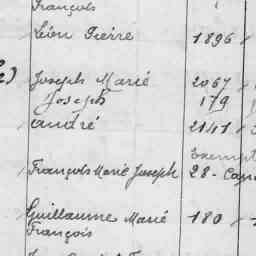 François
Léon Pierre 1896
Joseph Marie 2067
Joseph 179
André 2141
Exempt
François Marie Joseph 28 - Can
Guillaume Marie 180
François